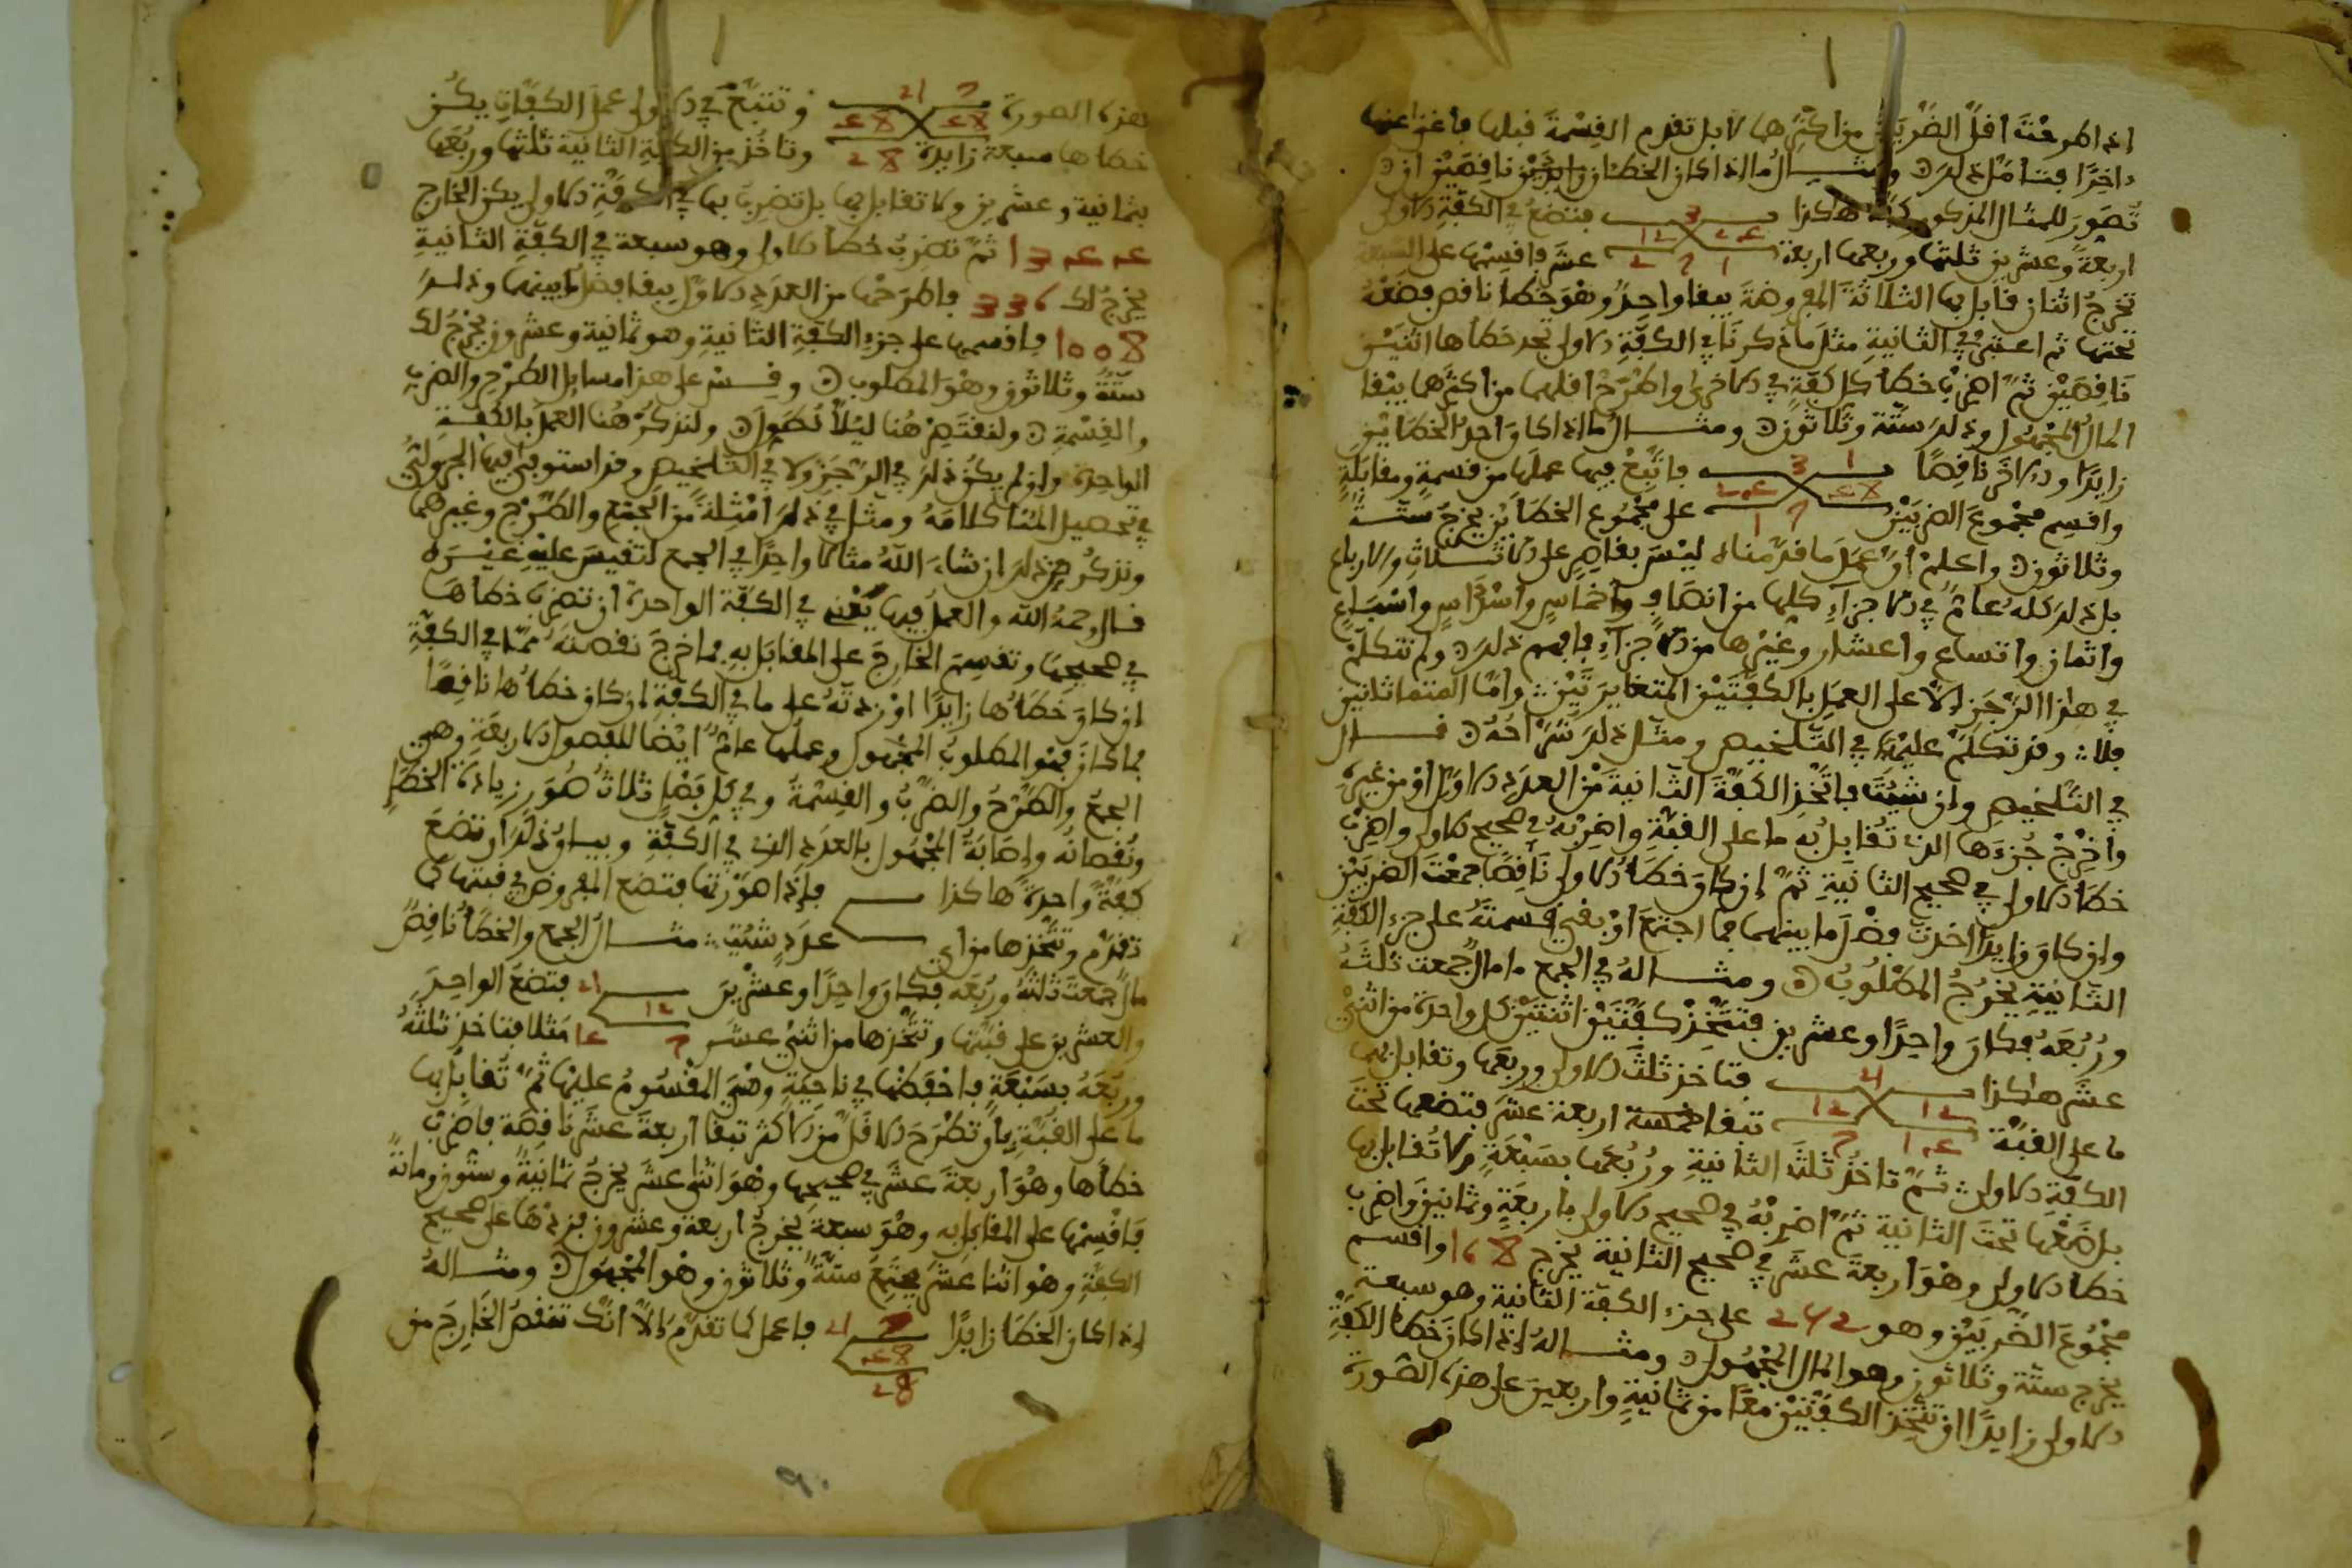 اذا طرحت اقل الضربين من اكثرهما لا بل تقدم القسمة قبلها فاغن عنها
داخرا فتامل ذلك ومثال ما اذا كان الخطئان زايدين ناقصين ان
تصور للمثال المذكور كفة هكذا 3 12 24 فتضع في الكفة الاولى
اربعة وعشرين ثلثها وربعها اربعة 1 7 2 عشر فاقسمها على السبعة
تخرج اثنان قابل بها الثلاثة المفروضة يبقا واحد وهو خطا ناقص فضعه
تحتها ثم اعتبر في الثانية مثل ما ذكرنا في الكفة الاولى تجد خطاها اثنين
ناقصين ثم اضرب خطا كل كفة في الاخرى واطرح اقلها من اكثرها يبقا
المال المجهول وذلك ستة وثلاثون ومثال ما اذا كان احد الخطاين
زايدا والاخر ناقصا 1 3 48 24 فاتبع فيها عملها من قسمة ومقابلة
واقسم مجموع الضربين 7 1 على مجموع الخطاين يخرج ستة
وثلاثون واعلم ان عمل ما قدمناه ليس بقاصر على الاثلاث والارباع
بل ذلك كله عام في الاجزاء كلها من انصاف واخماس واسداس واسباع
واثمان واتساع واعشار وغيرها من الاجزاء فافهم ذلك ولم نتكلم
في هذا الرجز الا على العمل بالكفتين المتغايرتين واما المتماثلتين
فلا وقد تكلم عليها في التلخيص ومثل ذلك شراحه قال
في التلخيص وان شئت فاتخذ الكفة الثانية من العدد الاول او من غيره
واخرج جزءها الذي تقابل به ما على القبة واضربه في صحيح الاولى واضرب
خطا الاولى في صحيح الثانية ثم ان كان خطا الاولى ناقصا جمعت الضربين
وان كان زايدا اخذت فضل ما بينهما فما اجتمع او بقي قسمته على جزء الكفة
الثانية يخرج المطلوب ومثاله في الجمع مال جمعت ثلثه
وربعه فكان واحدا وعشرين فتتخذ كفتين اثنتين كل واحدة من اثني
عشر هكذا 21 12 12 فتاخذ ثلث الاولى وربعها وتقابل بها
ما على القبة 14 7 تبقا اربعة عشر فتضعها تحت
الكفة الاولى ثم تاخذ ثلث الثانية وربعها بسبعة ولا تقابل بها
بل ضعها تحت الثانية ثم اضربه في صحيح الاولى باربعة وثمانين واضرب
خطا الاولى وهو اربعة عشر في صحيح الثانية يخرج 168 واقسم
مجموع الضربين وهو 252 على جزء الكفة الثانية وهو سبعة
يخرج ستة وثلاثون وهو المال المجهول ومثاله اذا كان خطا الكفة
الاولى زايدا ان تتخذ الكفتين معا من ثمانية واربعين على هذه الصورة
هذه الصورة 7 21 48 48 وتتبع في الاولى عمل الكفات يكن
خطاها سبعة زايدة 28 وتاخذ من الكفة الثانية ثلثها وربعها
بثمانية وعشرين ولا تقابل بها بل تضرب بها في الكفة الاولى يكن الخارج
1344 ثم تضرب خطا الاولى وهو سبعة في الكفة الثانية
يخرج لك 336 فاطرحها من العدد الاول يبقا فضل ما بينهما وذلك
1008 فاقسمها على جزء الكفة الثانية وهو ثمانية وعشرون يخرج لك
ستة وثلاثون وهو المطلوب وقس على هذا مسايل الطرح والضرب
والقسمة ولنقتصر هنا ليلا نطول ولنذكر هنا العمل بالكفة
الواحدة وان لم يكن ذلك في الرجز ولا في التلخيص وقد استوفى فيها
في تحصيل المنا كلامه ومثل في ذلك امثلة من الجمع والطرح وغيرهما
ونذكر من ذلك ان شاء الله مثالا واحدا في الجمع لتقيس عليه غيره
قال رحمه الله والعمل فيها يعني في الكفة الواحدة ان تضرب خطاها
في صحيحها وتقسم الخارج على المقابل به فما خرج نقصته مما في الكفة
ان كان خطاها زايدا او زدته على ما في الكفة ان كان خطاها ناقصا
فما كان فهو المطلوب المجهول وعملها عام ايضا للفصول الاربعة وهي
الجمع والطرح والضرب والقسمة وفي كل فصل ثلاث صور زيادة الخطا
ونقصانه واصابة المجهول بالعدد الذي في الكفة وبيان ذلك ان تضع
كفة واحدة هاكذا فاذا صورتها فتضع المفروض في قبتها كما
تقدم وتتخذها من اي عدد شئت مثال الجمع والخطا ناقص
مال جمعت ثلثه وربعه فكان واحدا وعشرين 21 12 فتضع الواحد
والعشرين على قبتها وتتخذها من اثني عشر 7 14 مثلا فتاخذ ثلثه
وربعه بسبعة فاحفظها في ناحية وهي المقسوم عليها ثم تقابل بها
ما على القبة بان تطرح الاقل من الاكثر تبقا اربعة عشر ناقصة فاضرب
خطاها وهو اربعة عشر في صحيحها وهو اثنى عشر يخرج ثمانية وستون ومائة
فاقسمها على المقابل به وهو سبعة يخرج اربعة وعشرون فزدها على صحيح
الكفة وهو اثنا عشر يجتمع ستة وثلاثون وهو المجهول ومثاله
اذا كان الخطا زايدا 7 21 48 28 فاعمل كما تقدم الا انك تنقص الخارج من